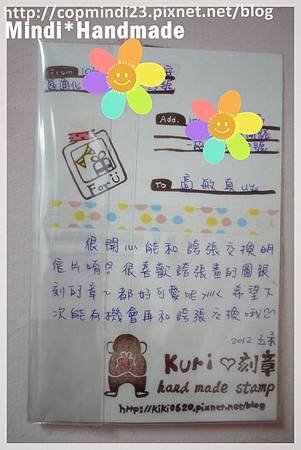 http://copmindi23.pixnet.net/blog
Mindi*Handmade
From
Add.
For U
To
很開心能和誇張交換明
信片唷!! 很喜歡誇張畫的圖跟
刻的章~都好可愛呢>///< 希望下
次能有機會再和誇張交換哦
2012
Kuri♡刻章
hand made stamp
http://kiki0620.pixnet.net/blog